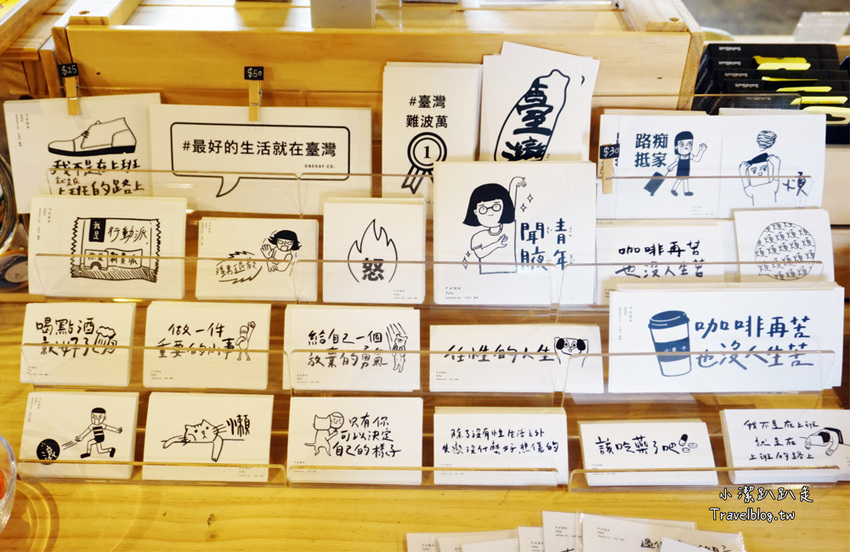 $25
$50
我不是在上班
就是在
上班的路上
#最好的生活就在臺灣
ONEDAY CO.
#臺灣
難波萬
1
臺灣
$30
路痴
抵家
煩
我是
行動派
怒
腋聞
青年
咖啡再苦
也沒人生苦
喝點酒
就好了
做一件
重要的小事
給自己一個
放棄的勇氣
任性的人生
咖啡再苦
也沒人生苦
滾
懶
只有你
可以決定
自己的樣子
除了沒有性生活之外
該吃藥了吧
我不是在上班
就是在
上班的路上
小潔趴趴走
Travelblog.tw